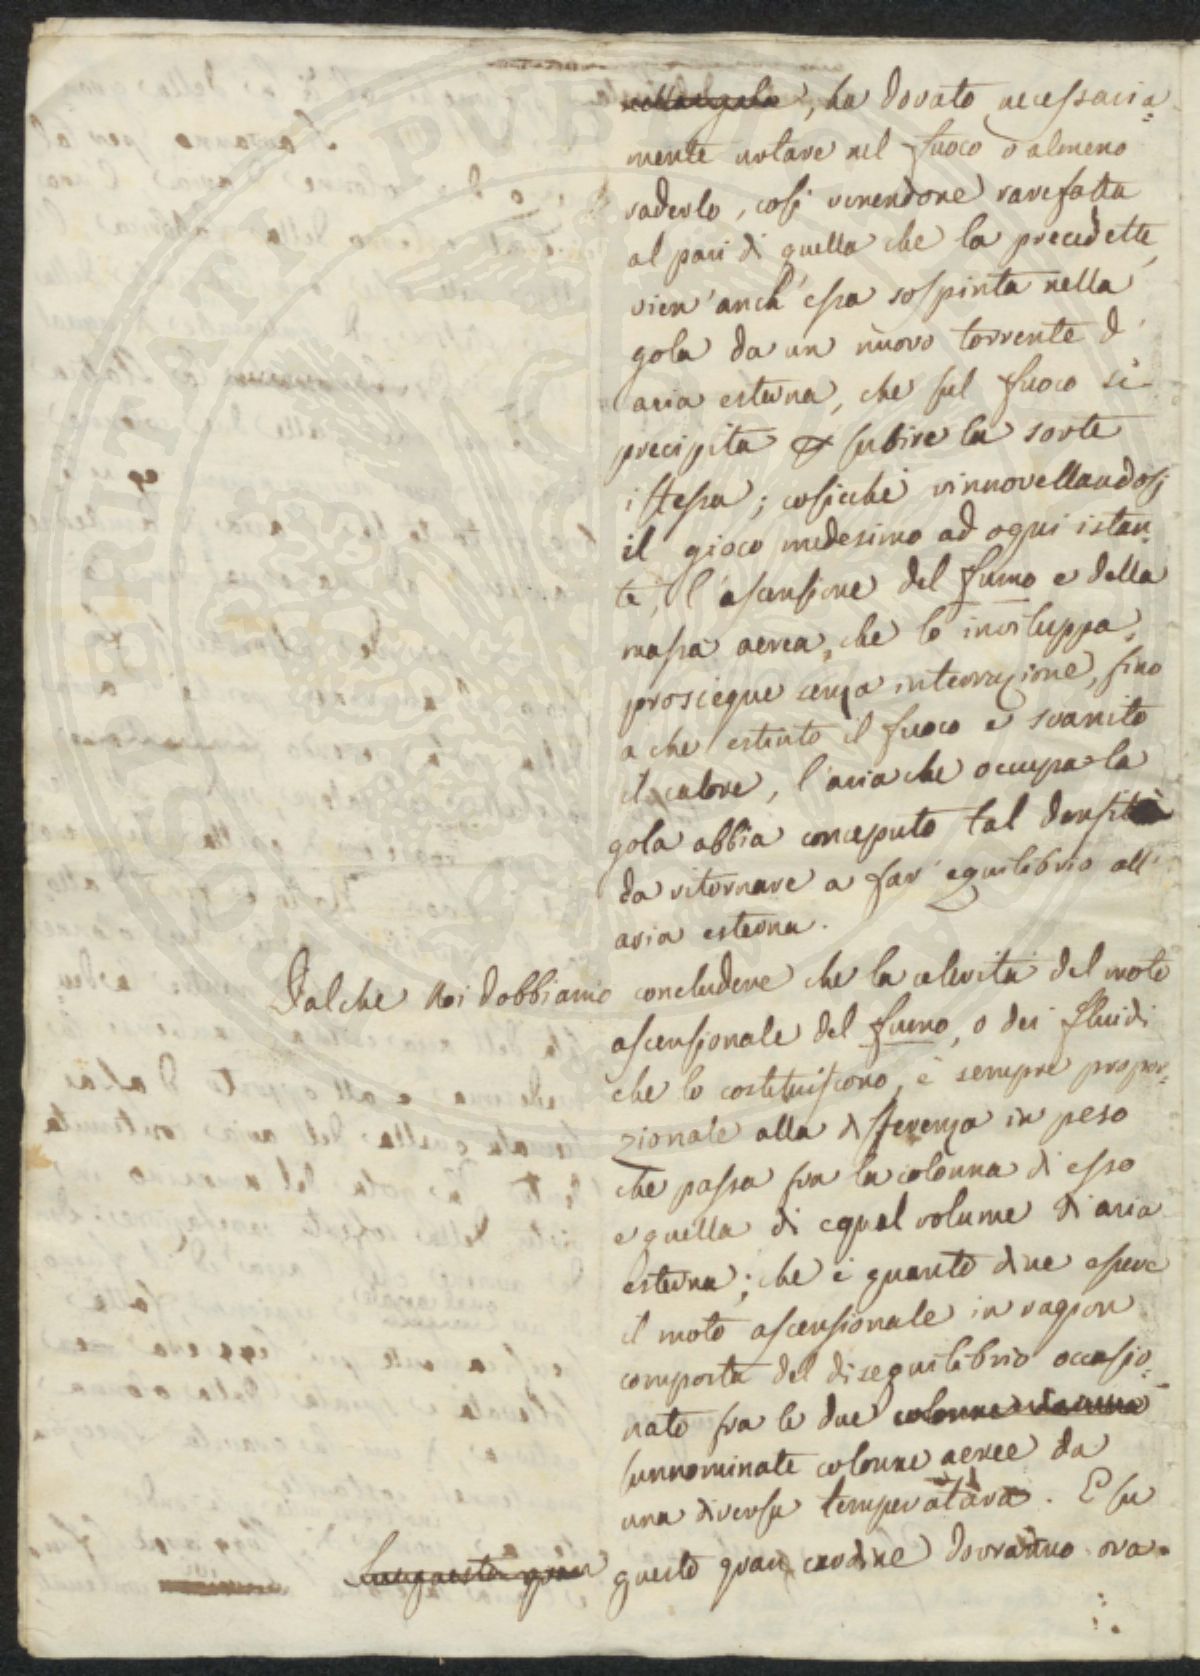 nella gola, ha dovuto necessaria=
mente urtare nel fuoco o almeno
raderlo, così venendone rarefatta
al pari di quella che la precedette,
vien' anch' essa sospinta nella
gola da un nuovo torrente d'
aria esterna, che sul fuoco si
precipita a subire la sorte
istessa; cosicché rinnovellandosi
il gioco medesimo ad ogni istan=
te, l'ascensione del fumo e della
massa aerea, che lo inviluppa,
prosiegue senza interruzione, fino
a che estinto il fuoco e svanito
il calore, l'aria che occupa la
gola abbia conceputo tal densità
da ritornare a far equilibrio all'
aria esterna.
Dalche noi dobbiamo concludere che la celerità del moto
ascensionale del fumo, o dei fluidi
che lo costituiscono, è sempre propor=
zionale alla differenza in peso
che passa fra la colonna di esso
e quella di egual volume di aria
esterna; che è quanto dire essere
il moto ascensionale in ragion
composta del disequilibrio occasio=
nato fra le due colonne
sunnominate colonne aeree da
una diversa temperatura. E su
Su questo gran questo gran cardine dovranno ora